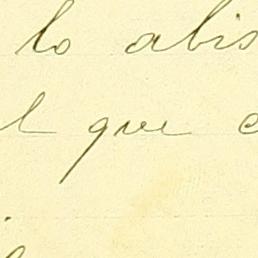 lo abis
l que e